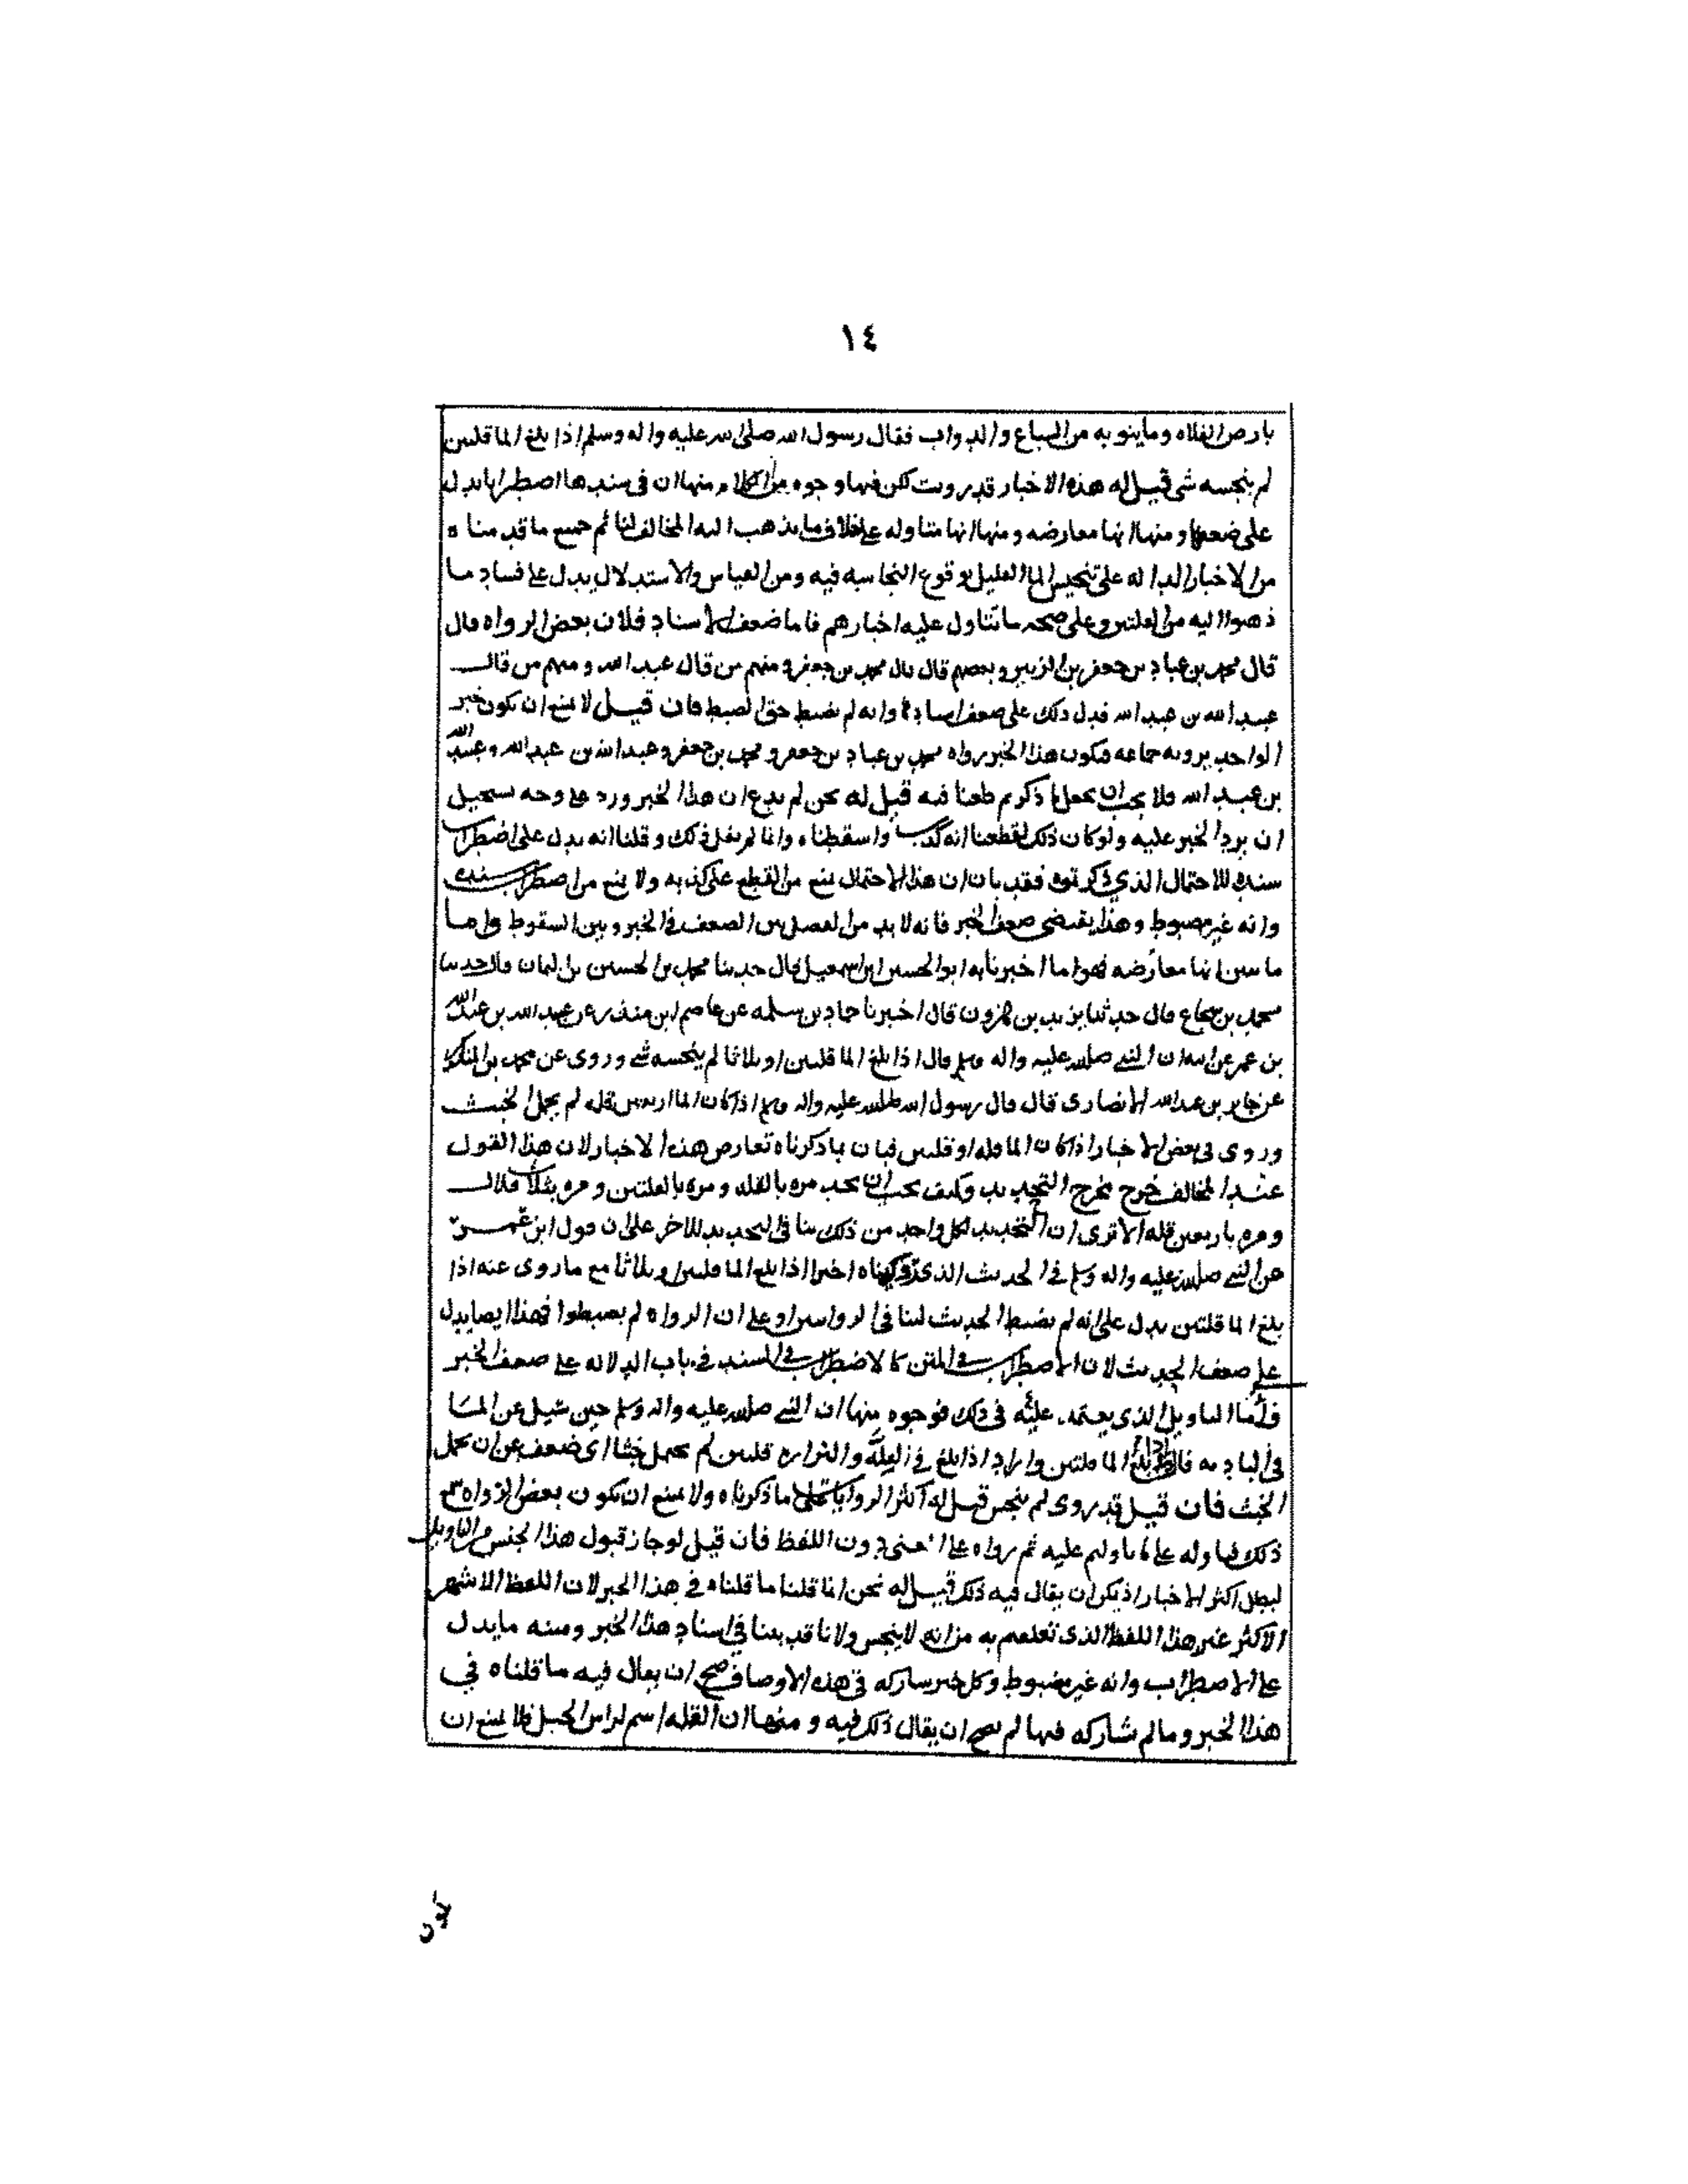 ١٤
بارض الفلاه وما ينوبه من السباع والدواب فقال رسول الله صلى الله عليه واله وسلم اذا بلغ الما قلتين
لم ينجسه شي قيل له هذه الاخبار قد رويت لكن فيها وجوه من الكلام منها ان في سندها اضطرابا يدل
على ضعفها ومنها انها معارضه ومنها انها متاوله على خلاف ما يذهب اليه المخالف لنا ثم جميع ما قدمناه
من الاخبار الداله على تنجيس الما القليل بوقوع النجاسه فيه ومن القياس والاستدلال يدل على فساد ما
ذهبوا اليه من القلتين وعلى صحه ما نتاول عليه اخبارهم فاما ضعف الاسناد فلان بعض الرواه قال
قال محمد بن عباد بن جعفر بن الزبير وبعضهم قال قال محمد بن جعفر ومنهم من قال عبد الله ومنهم من قال
عبيد الله بن عبد الله فدل ذلك على ضعف اسنادها وانه لم يضبط حق الضبط فان قيل لا يمنع ان يكون خبر
الواحد يرويه جماعه فيكون هذا الخبر رواه محمد بن عباد بن جعفر ومحمد بن جعفر وعبد الله بن عبد الله وعبيد الله
بن عبد الله فلا يجب ان يجعل ما ذكرتم طعنا فيه قيل له نحن لم ندع ان هذا الخبر ورد على وجه يستحيل
ان يرد الخبر عليه ولو كان ذلك لقطعنا انه كذب واسقطناه وانا لم نفعل ذلك وقلنا انه يدل على اضطراب
سنده للاحتمال الذي ذكرتوه فقد بان ان هذا الاحتمال يمنع من القطع على كذبه ولا يمنع من اضطراب سنده
وانه غير مضبوط وهذا يقتضي ضعف الخبر فانه لا بد من الفصل بين الضعف في الخبر وبين السقوط واما
ما يبين انها معارضه فهو ما اخبرنا به ابو الحسين بن اسمعيل قال حدثنا محمد بن الحسين بن اليمان قال حدثنا
محمد بن شجاع قال حدثنا يزيد بن هرون قال اخبرنا حماد بن سلمه عن عاصم ابن منذر عن عبيد الله بن عبد الله
بن عمر عن ابيه ان النبي صلى الله عليه واله وسلم قال اذا بلغ الما قلتين او ثلاثا لم ينجسه شي وروي عن محمد بن المنكدر
عن جابر بن عبد الله الانصاري قال قال رسول الله صلى الله عليه واله وسلم اذا كان الما اربعين قله لم يحمل الخبث
وروي في بعض الاخبار اذا كان الما قله او قلتين فبان بما ذكرناه تعارض هذه الاخبار لان هذا القول
عند المخالف خرج مخرج التحديد وكيف يجب ان يحد مره بالقله ومره بالقلتين ومره بثلاث قلال
ومره باربعين قله الا ترى ان التحديد لكل واحد من ذلك ينافي التحديد للاخر على ان قول ابن عمر
عن النبي صلى الله عليه واله وسلم في الحديث الذي ذكرناه اخيرا اذا بلغ الما قلتين او ثلاثا مع ما روي عنه اذا
بلغ الما قلتين يدل على انه لم يضبط الحديث لتنافي الروايتين او على ان الرواه لم يضبطوا فهذا ايضا يدل
على ضعف الحديث لان الاضطراب في المتن كالاضطراب في السند في باب الدلاله على ضعف الخبر
فاما التاويل الذي يعتمد عليه في ذلك فوجوه منها ان النبي صلى الله عليه واله وسلم حين سئل عن الما
في الباديه قال اذا بلغ الما قلتين واراد اذا بلغ في القله والنزاره قلتين لم يحمل خبثا اي ضعف عن ان يحمل
الخبث فان قيل قد روي لم ينجس قيل له اكثر الروايات على ما ذكرناه ولا يمنع ان يكون بعض الرواه سمع
ذلك فتاوله على ما تاولتم عليه ثم رواه على المعنى دون اللفظ فان قيل لو جاز قبول هذا الجنس من التاويل
لبطل اكثر الاخبار اذ يمكن ان يقال فيه ذلك قيل له نحن انما قلنا ما قلناه في هذا الخبر لان اللفظ الاشهر
الاكثر غير هذا اللفظ الذي تعلقتم به من انه لا ينجس ولانا قد بينا في اسناد هذا الخبر ومتنه ما يدل
على الاضطراب وانه غير مضبوط وكل خبر شاركه في هذه الاوصاف صح ان يقال فيه ما قلناه في
هذا الخبر وما لم يشاركه فيها لم يصح ان يقال ذلك فيه ومنها ان القله اسم لراس الجبل فلا يمنع ان
يكون